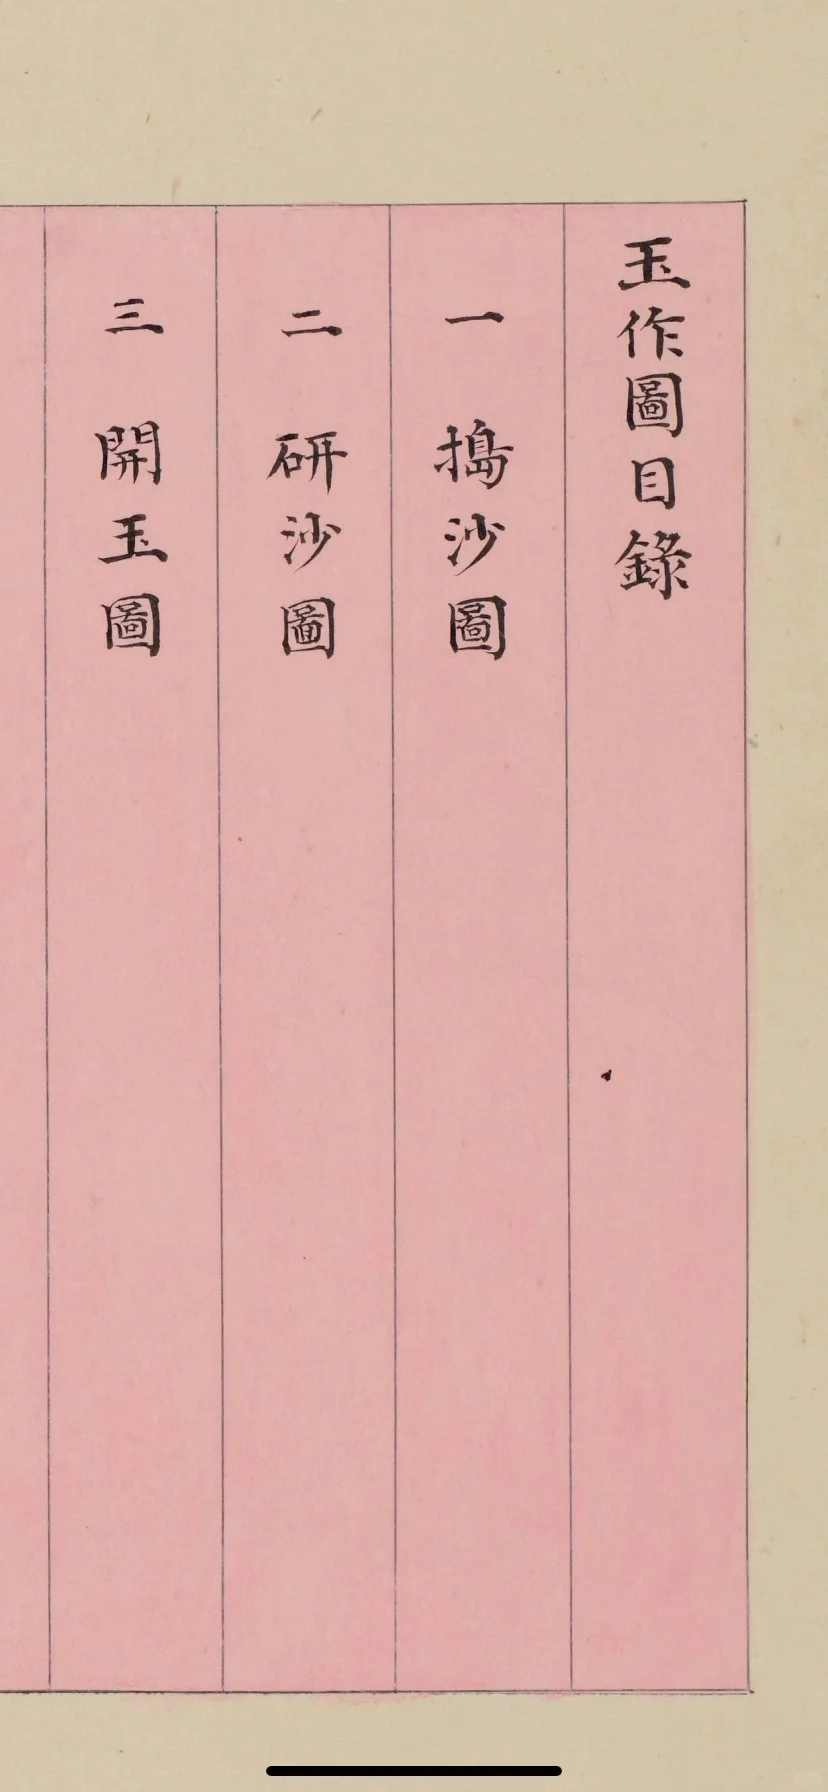 玉作圖目錄
一 搗沙圖
二 研沙圖
三 開玉圖